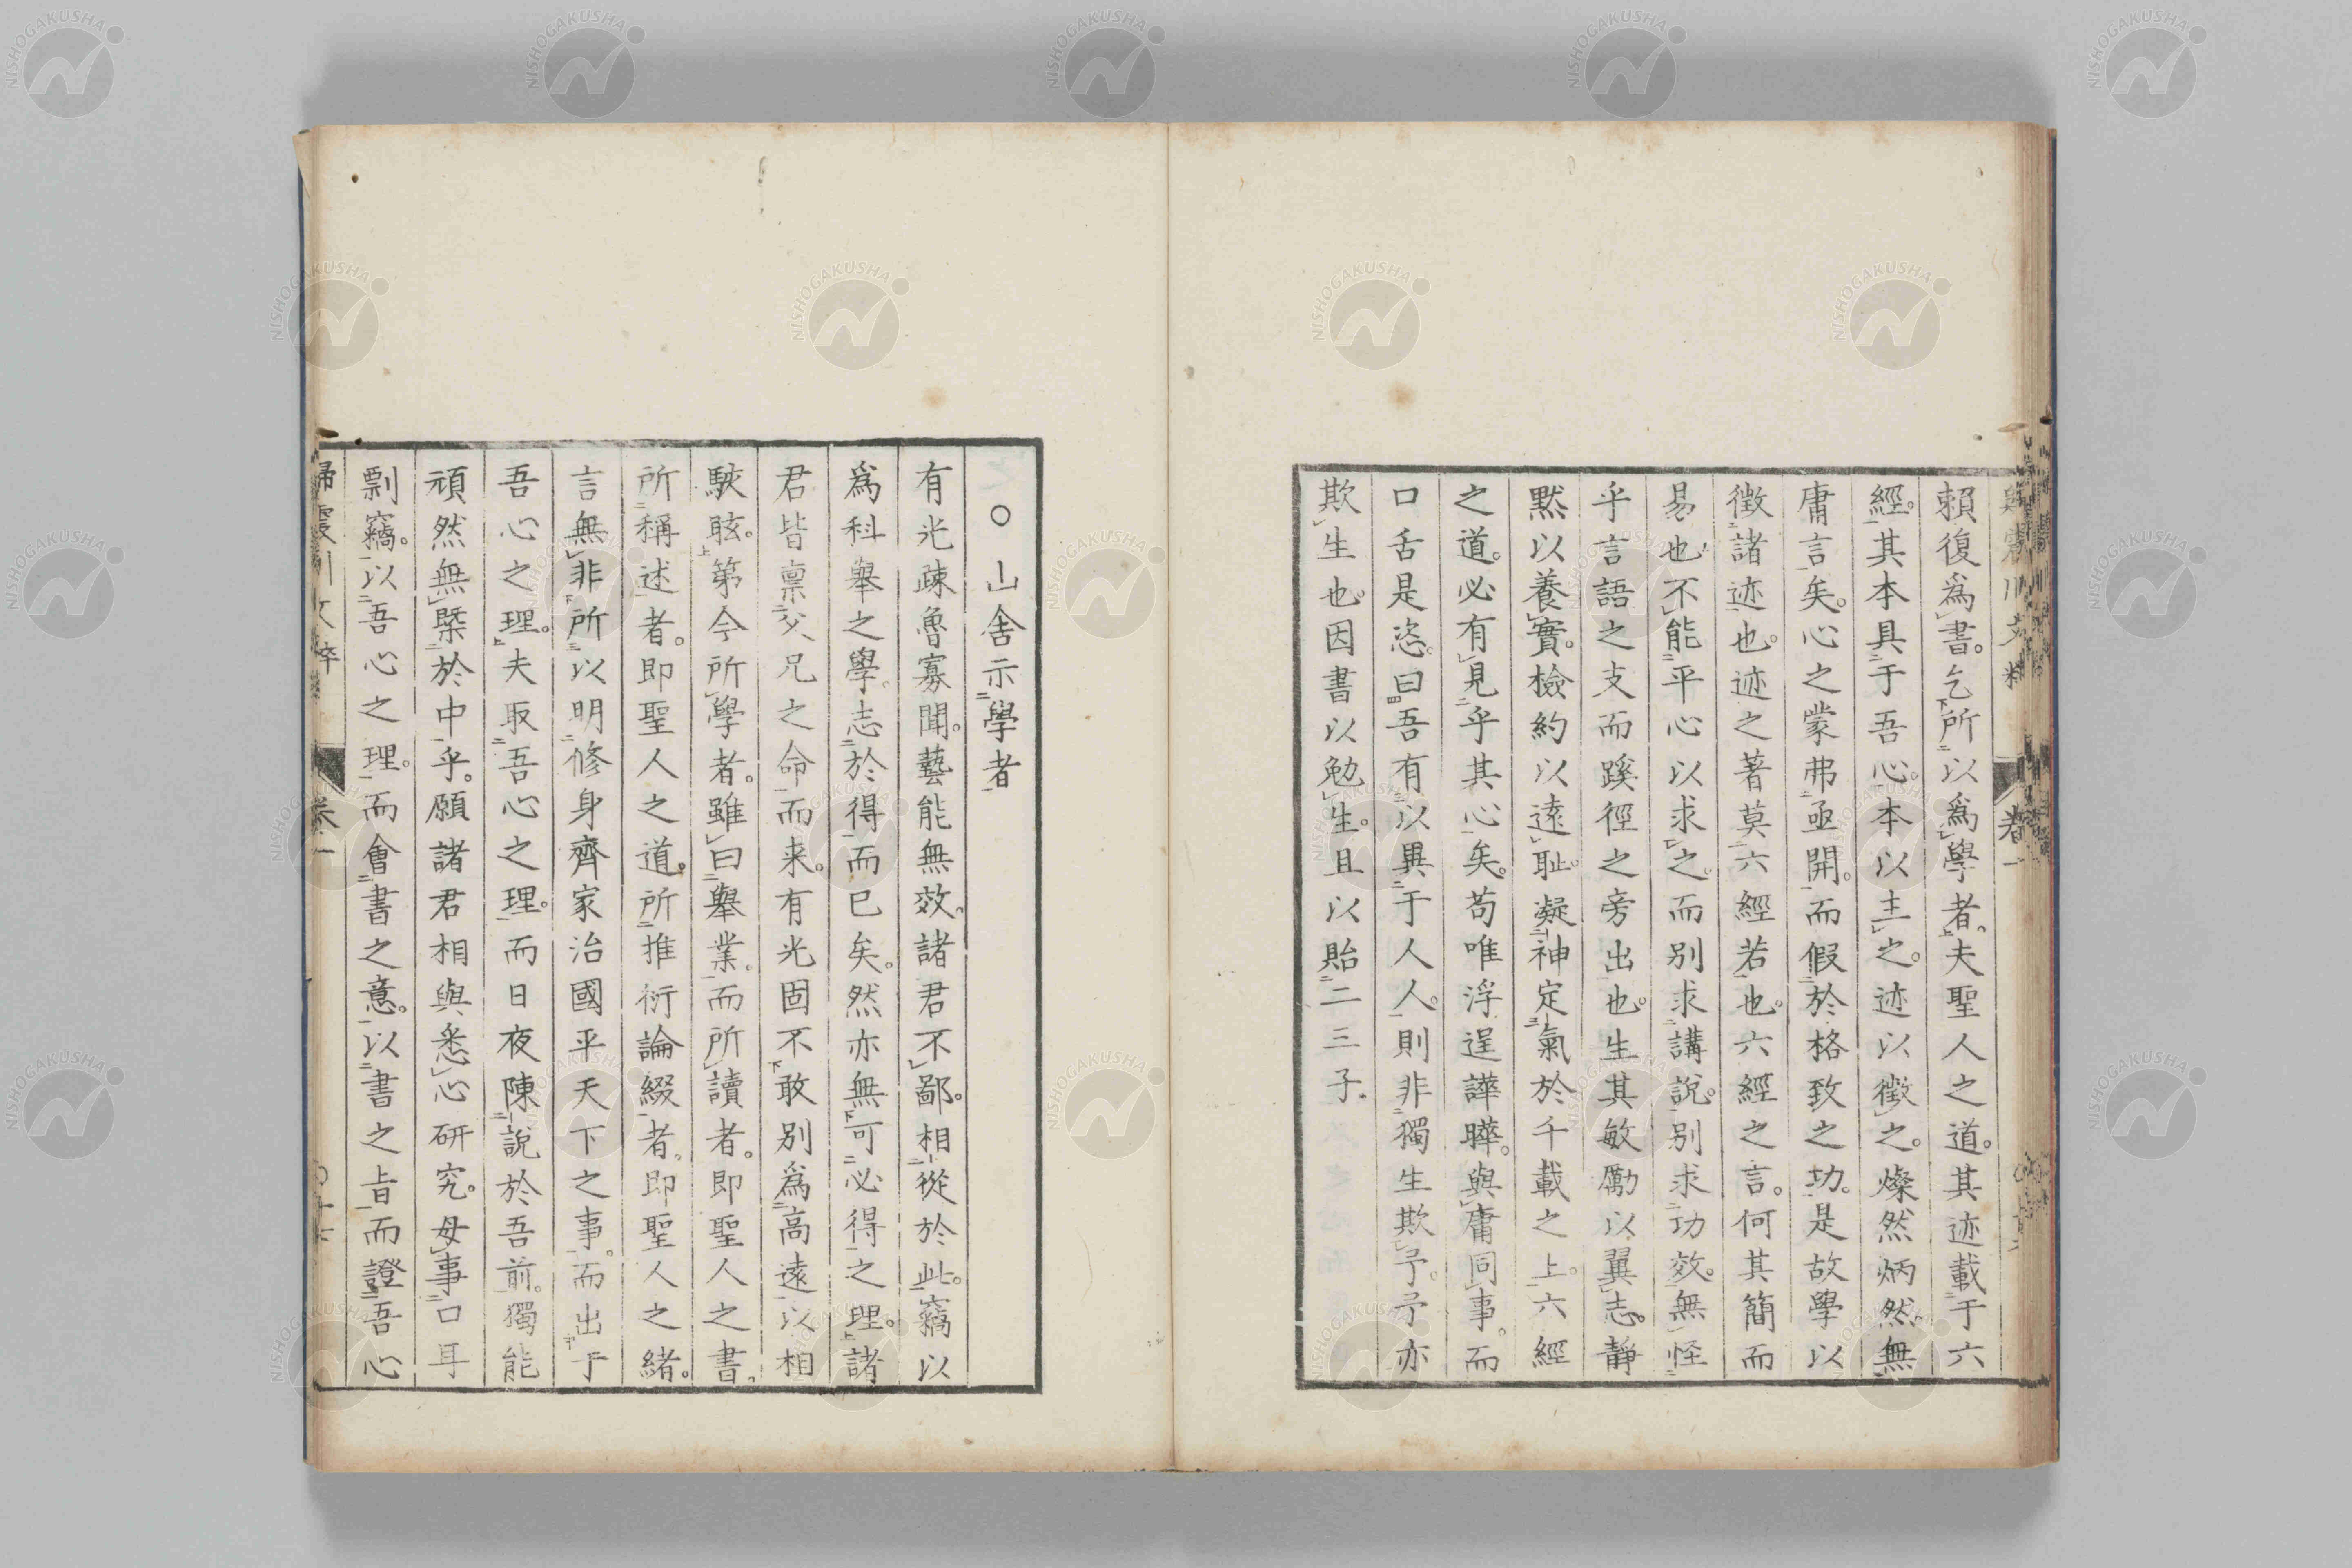 賴復爲書。乞所以爲學者。夫聖人之道。其迹載于六
經。其本具于吾心。本以主之。迹以徵之。燦然炳然無
庸言矣。心之蒙弗亟開。而假於格致之功。是故學以
徵諸迹也。迹之著莫六經若也。六經之言。何其簡而
易也。不能平心以求之。而別求講說。別求功效。無怪
乎言語之支而蹊徑之旁出也。生其敏勵以翼志。靜
默以養實。檢約以遠耻。凝神定氣於千載之上。六經
之道。必有見乎其心矣。苟唯浮逞譁曄。與庸同事。而
口舌是恣。曰吾有以異于人人。則非獨生欺予。予亦
欺生也。因書以勉生。且以貽二三子。
○山舍示學者
有光疎魯寡聞。藝能無效。諸君不鄙。相從於此。竊以
爲科舉之學。志於得而已矣。然亦無可必得之理。諸
君皆稟父兄之命而来。有光固不敢別爲高遠以相
駭眩。第今所學者。雖曰舉業。而所讀者。即聖人之書。
所稱述者。即聖人之道。所推衍論綴者。即聖人之緒
言。無非所以明修身齊家治國平天下之事。而出于
吾心之理。夫取吾心之理。而日夜陳說於吾前。獨能
頑然無槩於中乎。願諸君相與悉心研究。毋事口耳
剽竊。以吾心之理。而會書之意。以書之旨而證吾心
歸震川文粹 卷一
NISHOGAKUSHA